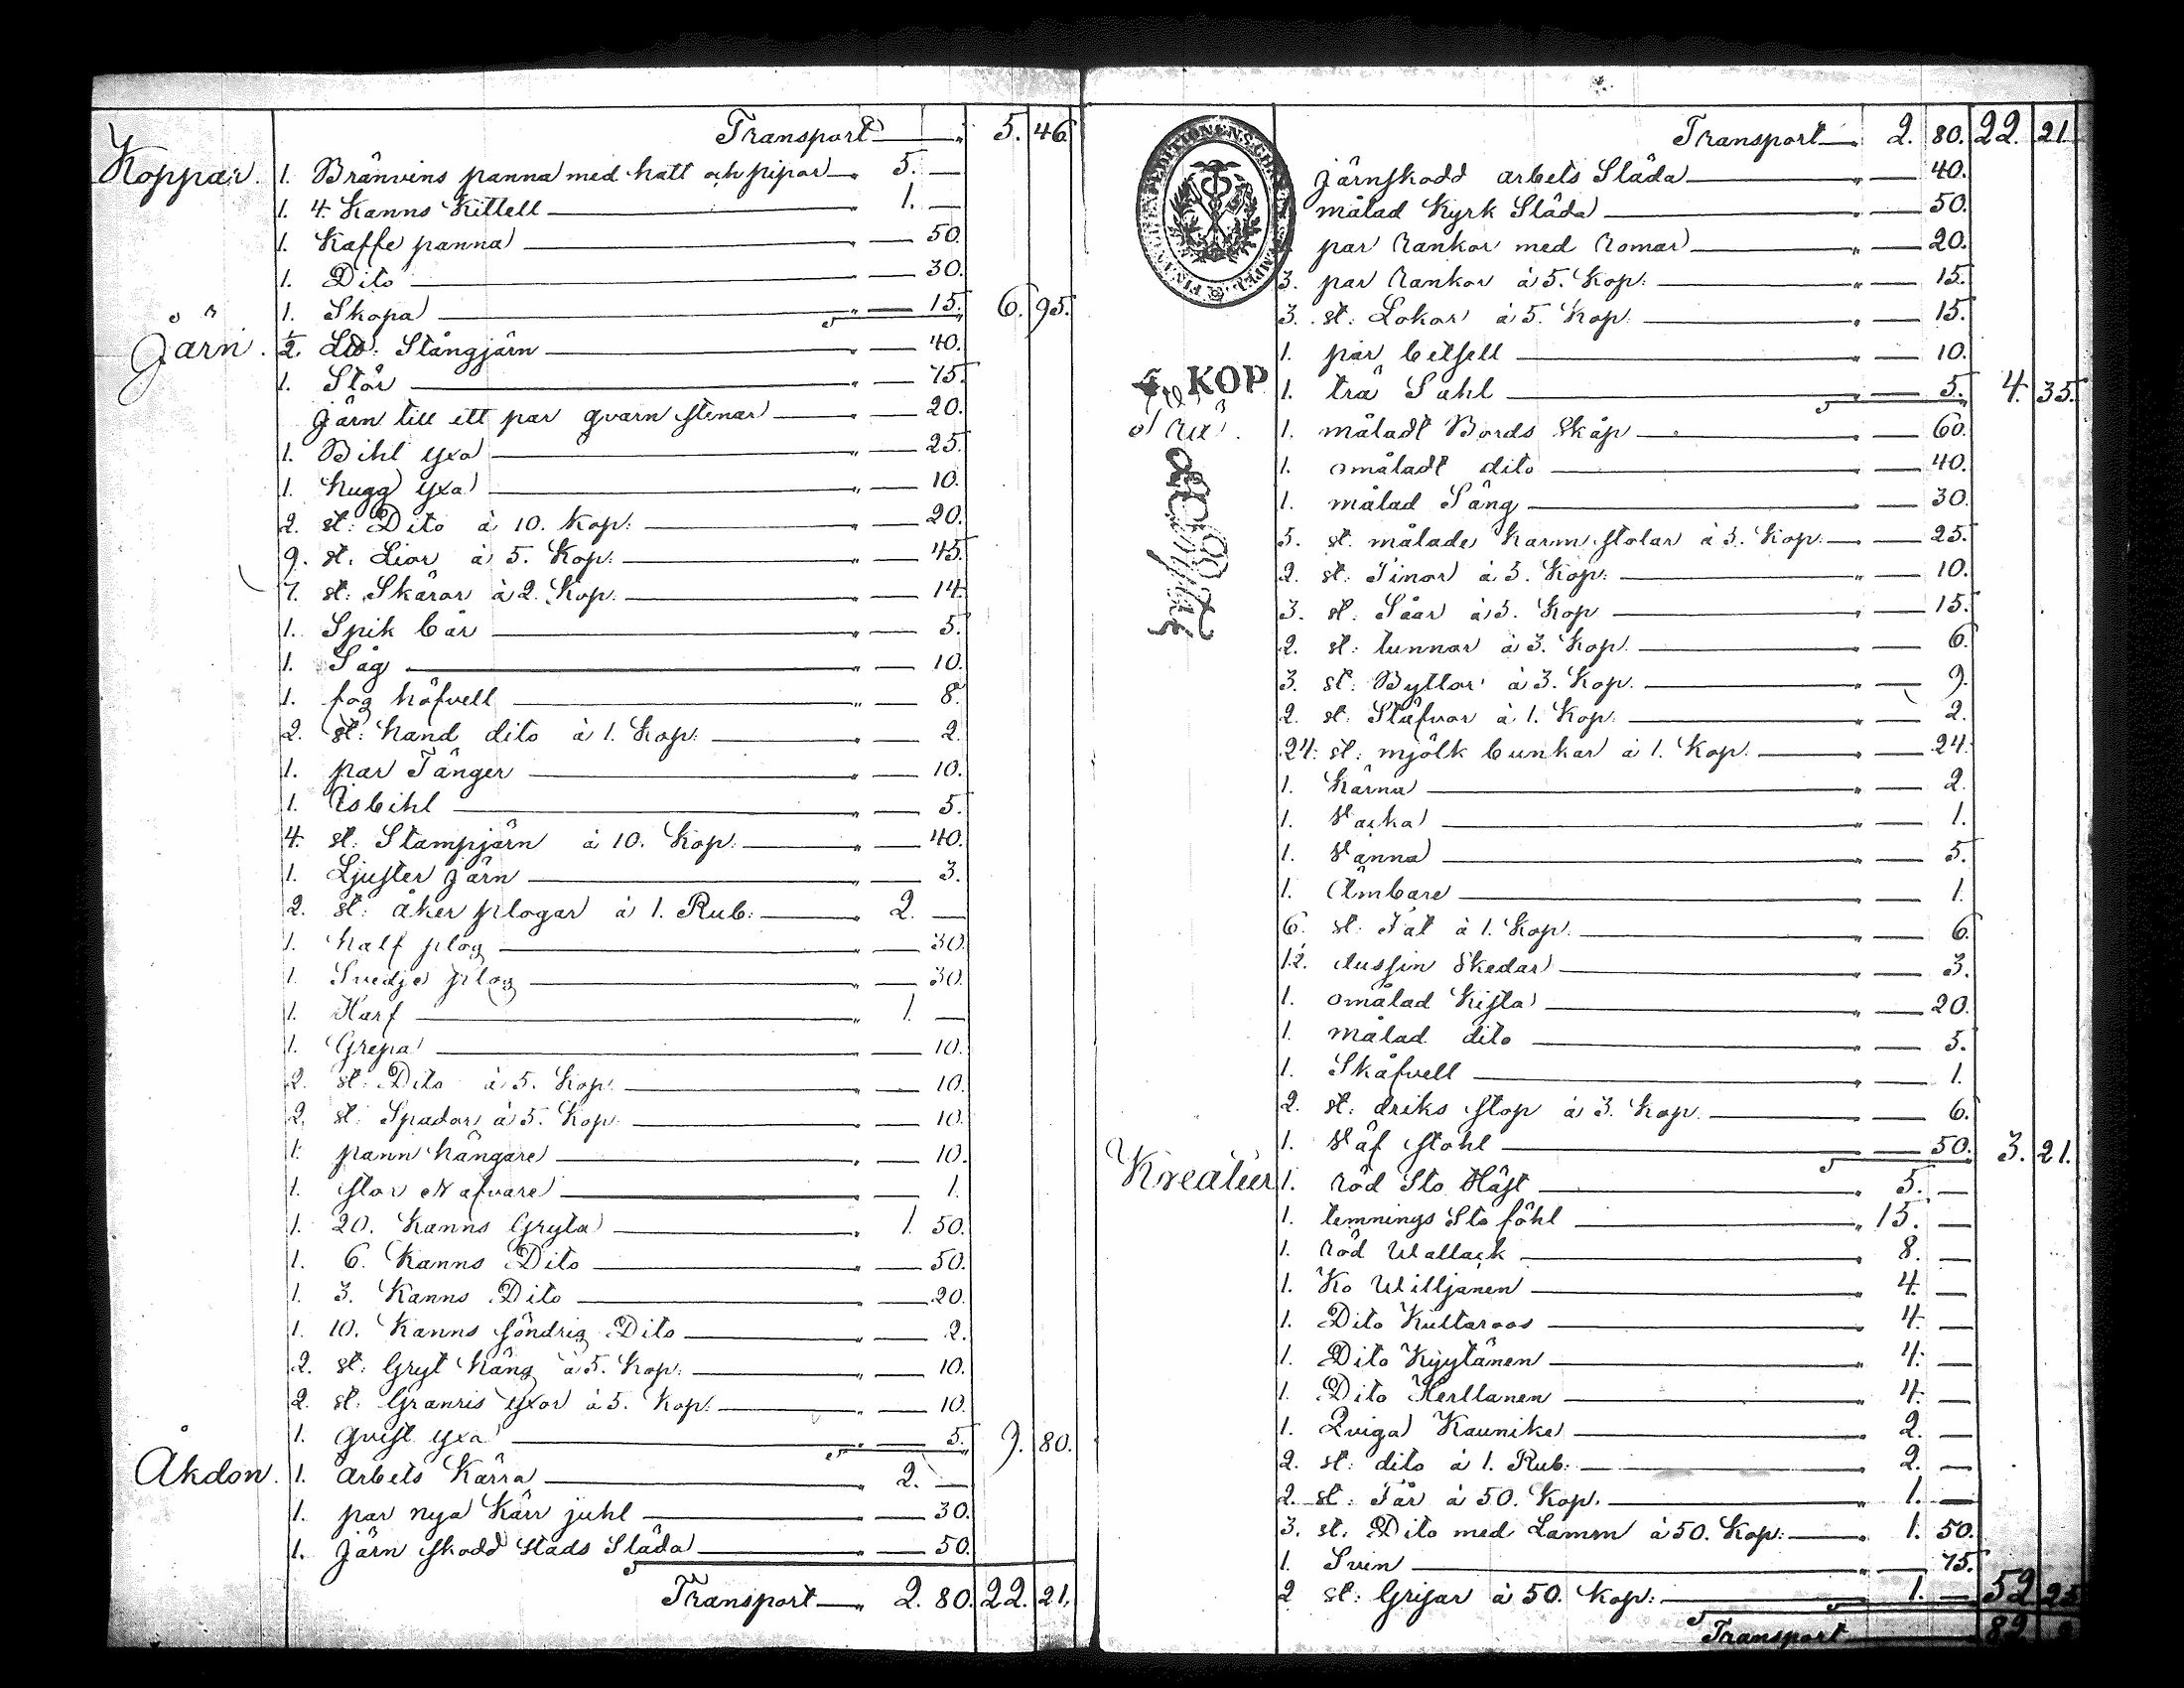 Transport 5. 46
Koppar. 1. Bränvins panna med hatt och pipor 5. —
1. 4. Kanns Kittell 1. —
1. Kaffe panna — 50.
1. Dito — 30.
1. Skopa — 15. 6. 95.
Järn. ½ Lld: Stångjärn — 40.
1. Stör — 75.
Järn till ett par qvarn stenar — 20.
1. Bihl yxa — 25.
1. hugg yxa — 10.
2. st: Dito à 10. Kop: — 20.
9. st. Lior à 5. Kop: — 45.
7. st: Skäror à 2. Kop. — 14.
1. Spik bår — 5.
1. Såg — 10.
1. fog höfvell — 8.
2. st: hand dito à 1. Kop: — 2.
1. par Tänger — 10.
1. Isbihl — 5.
4. st: Stampjärn à 10. Kop. — 40.
1. Ljuster järn — 3.
2. st: åker plogar à 1. Rub: 2. —
1. half plog — 30.
1. Svedje plog — 30.
1. Harf 1. —
1. Grepa — 10.
2. st: Dito à 5. Kop: — 10.
2. st: Spadar à 5. Kop: — 10.
1. pann hängare — 10.
1. stor Nafvare — 1.
1. 20. Kanns Gryta 1. 50.
1. 6. Kanns Dito — 50.
1. 3. Kanns Dito — 20.
1. 10. Kanns söndrig Dito — 2.
2. st: Gryt häng à 5. Kop: — 10.
2. st: Granris yxor à 5. Kop: — 10.
1. qvist yxa — 5. 9. 80.
Åkdon. 1. arbets Kärra 2. —
1. par nya Kärr juhl — 30.
1. Järn skodd stads Släda — 50.
Transport 2. 80. 22. 21.
Transport 2. 80. 22. 21.
järnskodd arbets Släda — 40.
målad Kyrk Släda — 50.
par Rankor med Romar — 20.
3. par Rankor à 5. Kop: — 15.
3. st: Lokor à 5. Kop. — 15.
1. par betsell — 10.
KOP
1. trä Sahl — 5. 4. 35.
1. måladt Bords skåp — 60.
1. omåladt dito — 40.
1. målad Säng — 30.
5. st. målade karm stolar à 5. Kop: — 25.
2. st: Tinor à 5. Kop: — 10.
3. st: Såar à 5. Kop — 15.
2. st: tunnor à 3. Kop. — 6.
3. st: Byttor à 3. Kop. — 9.
2. st: Stäfvor à 1. Kop. — 2.
24. st: mjölk bunkar à 1. Kop. — 24.
1. Kärna — 2.
1. — 1.
1. — 5.
1. Ämbare — 1.
6. st. Fat à 1. Kop. — 6.
1.2. dussin Skedar — 3.
1. omålad Kista — 20.
1. målad dito — 5.
1. Skäfvell — 1.
2. st: driks stop à 3. Kop. — 6.
1. Väf stohl — 50. 3. 21.
Kreatur 1. röd Sto Häst 5. —
1. temnings Stoföhl 15. —
1. röd Wallack 8. —
1. Ko Williänen 4. —
1. Dito Kultaroos 4. —
1. Dito Kyytänen 4. —
1. Dito Herttanen 4. —
1. Qviga Kaunike 2. —
2. st: dito à 1. Rub: 2. —
2. st: Får à 50. Kop. 1. —
3. st. Dito med Lamm à 50. Kop: 1. 50.
1. Svin — 75.
2 st: Grisar à 50. Kop: 1. — 52 25
Transport 82